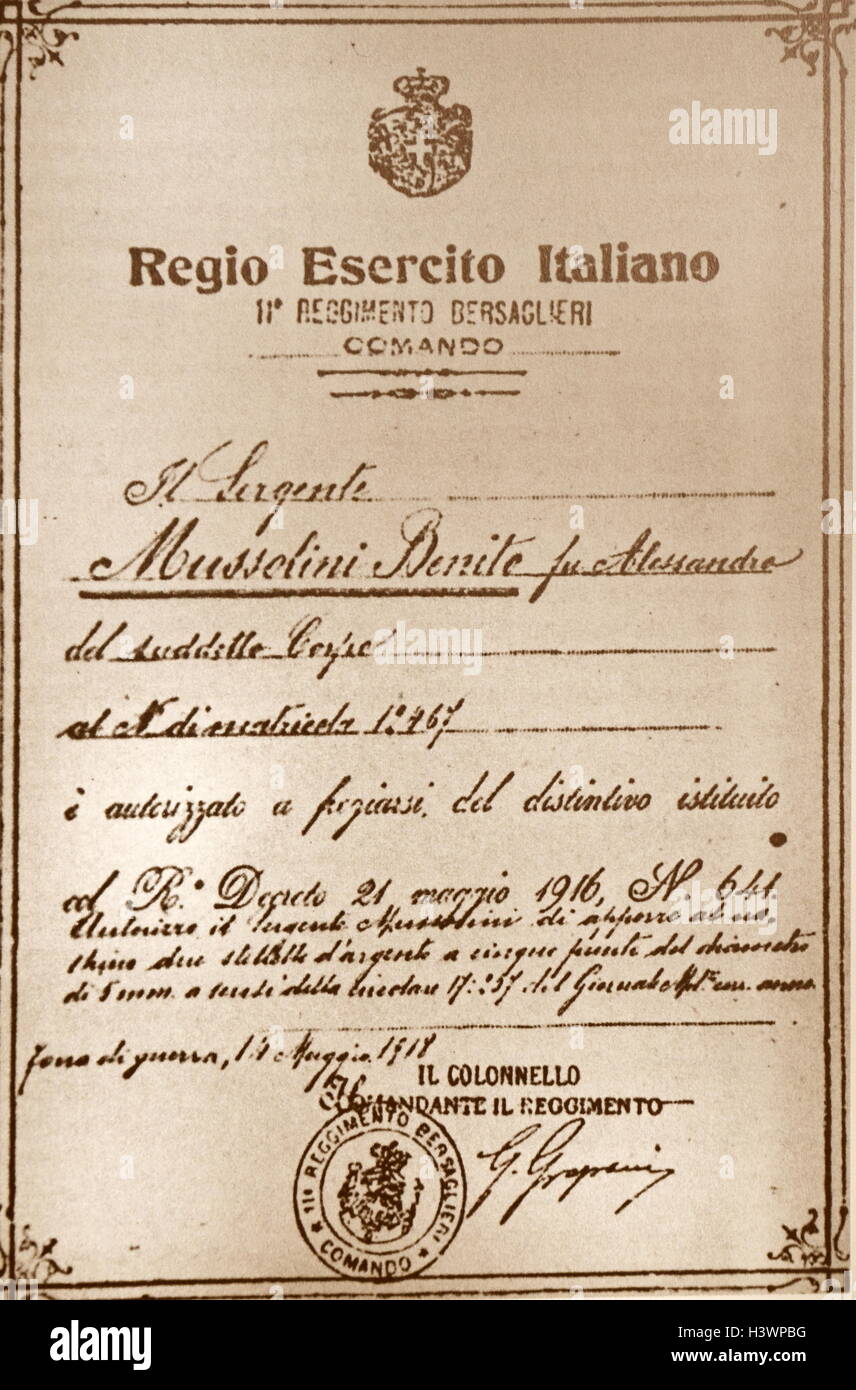 Regio Esercito Italiano
11° REGGIMENTO BERSAGLIERI
COMANDO
Il Sergente
Mussolini Benito fu Alessandro
del suddetto Corpo
al N° di matricola
è autorizzato a fregiarsi del distintivo istituito
col R.° Decreto 21 maggio 1916, N. 641
Autorizzo il Sergente Mussolini di apporre al na-
strino due stellette d'argento a cinque punte del diametro
di 5 mm. a sensi della circolare del Giornale corr. anno.
Zona di guerra, Maggio 1918
IL COLONNELLO
COMANDANTE IL REGGIMENTO
11° REGGIMENTO BERSAGLIERI
COMANDO
a
alamy
alamy
Image ID: H3WPBG
www.alamy.com